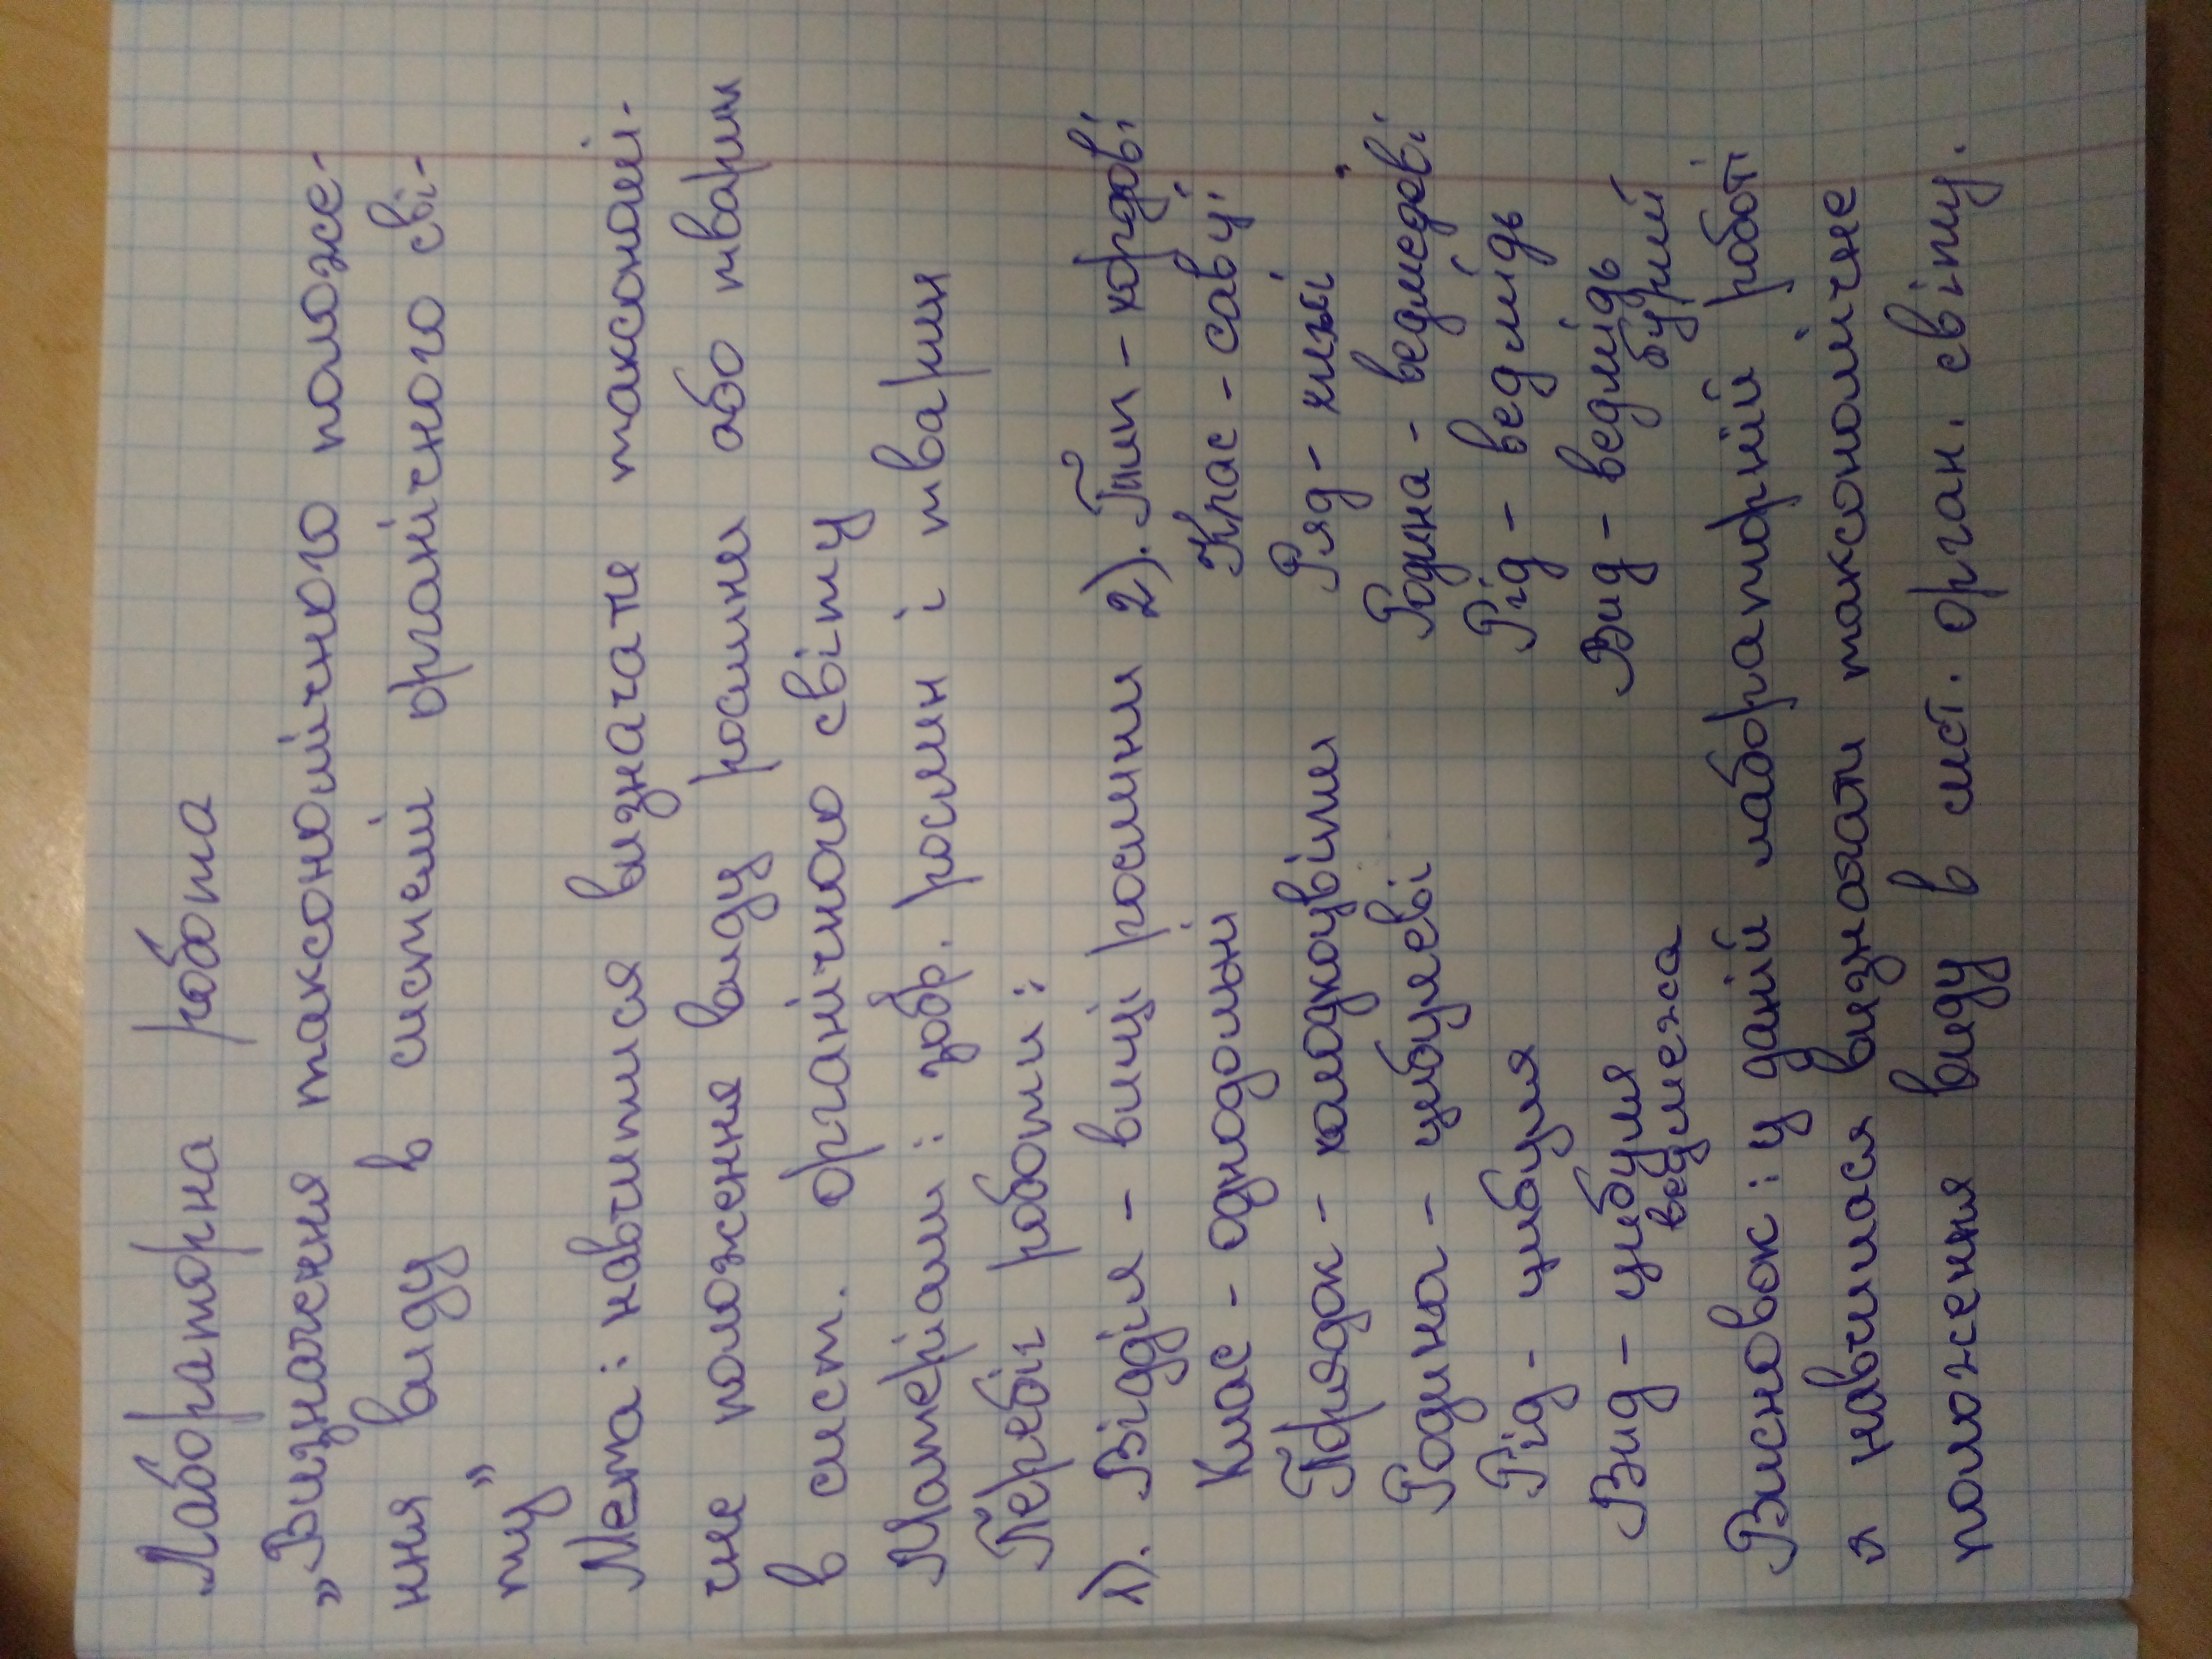 Лабораторна робота
„Визначення таксономічного положе-
ння виду в системі органічного сві-
ту”
Мета: навчитися визначати таксономі-
чне положення виду рослини або тварин
в сист. органічного світу
Матеріали: зобр. рослин і тварин
Перебіг роботи:
1). Відділ - вищі рослини 2). Тип - хордові
Клас - однодольні Клас - савці
Порядок - холодкоцвіти Ряд - хижі
Родина - цибулеві Родина - ведмедеві
Рід - цибуля Рід - ведмідь
Вид - цибуля Вид - ведмідь
ведмежа бурий
Висновок: у даній лабораторній роботі
я навчилася визначати таксономічне
положення виду в сист. орган. світу.